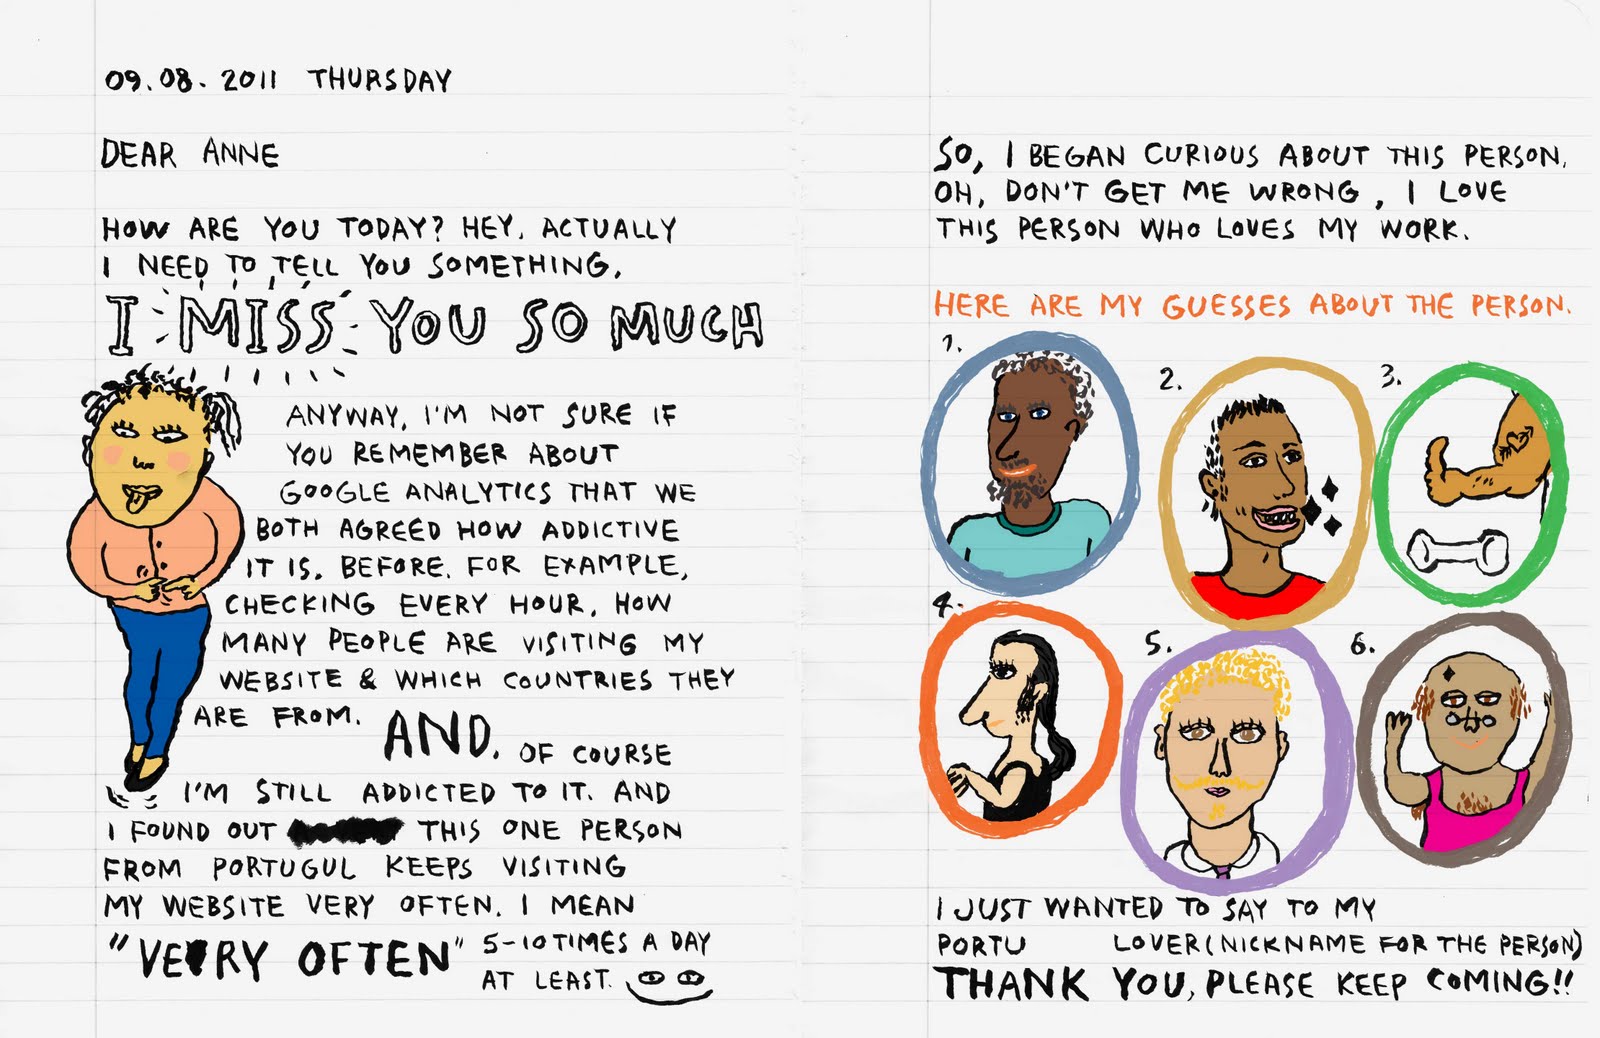 09.08.2011 THURSDAY
DEAR ANNE
HOW ARE YOU TODAY? HEY, ACTUALLY
I NEED TO TELL YOU SOMETHING.
I MISS YOU SO MUCH
ANYWAY, I'M NOT SURE IF
YOU REMEMBER ABOUT
GOOGLE ANALYTICS THAT WE
BOTH AGREED HOW ADDICTIVE
IT IS. BEFORE. FOR EXAMPLE,
CHECKING EVERY HOUR, HOW
MANY PEOPLE ARE VISITING MY
WEBSITE & WHICH COUNTRIES THEY
ARE FROM. AND, OF COURSE
I'M STILL ADDICTED TO IT. AND
I FOUND OUT THIS ONE PERSON
FROM PORTUGUL KEEPS VISITING
MY WEBSITE VERY OFTEN. I MEAN
"VERY OFTEN" 5-10 TIMES A DAY
AT LEAST.
SO, I BEGAN CURIOUS ABOUT THIS PERSON.
OH, DON'T GET ME WRONG, I LOVE
THIS PERSON WHO LOVES MY WORK.
HERE ARE MY GUESSES ABOUT THE PERSON.
1.
2.
3.
4.
5.
6.
I JUST WANTED TO SAY TO MY
PORTU LOVER (NICKNAME FOR THE PERSON)
THANK YOU, PLEASE KEEP COMING!!